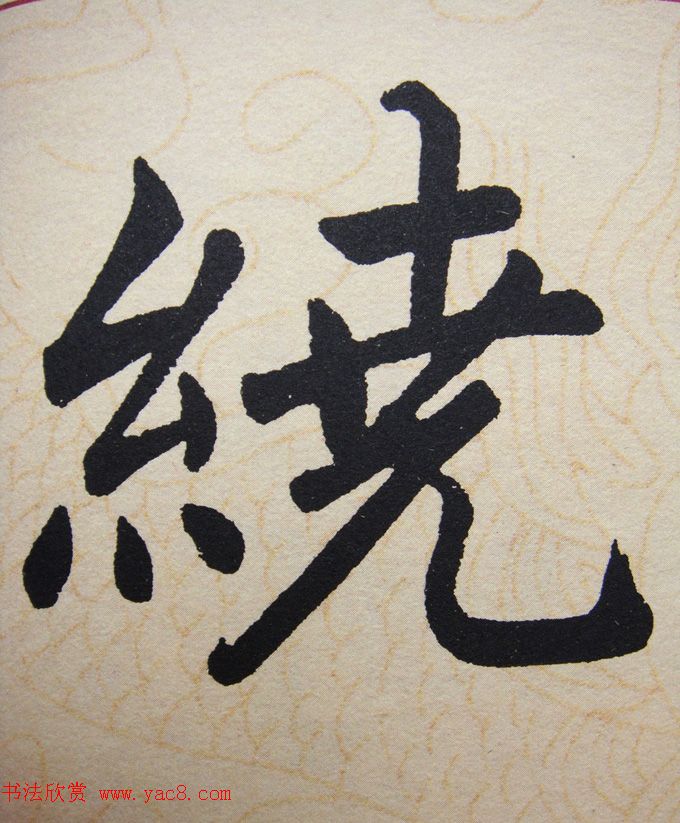 繞
书法欣赏 www.yac8.com